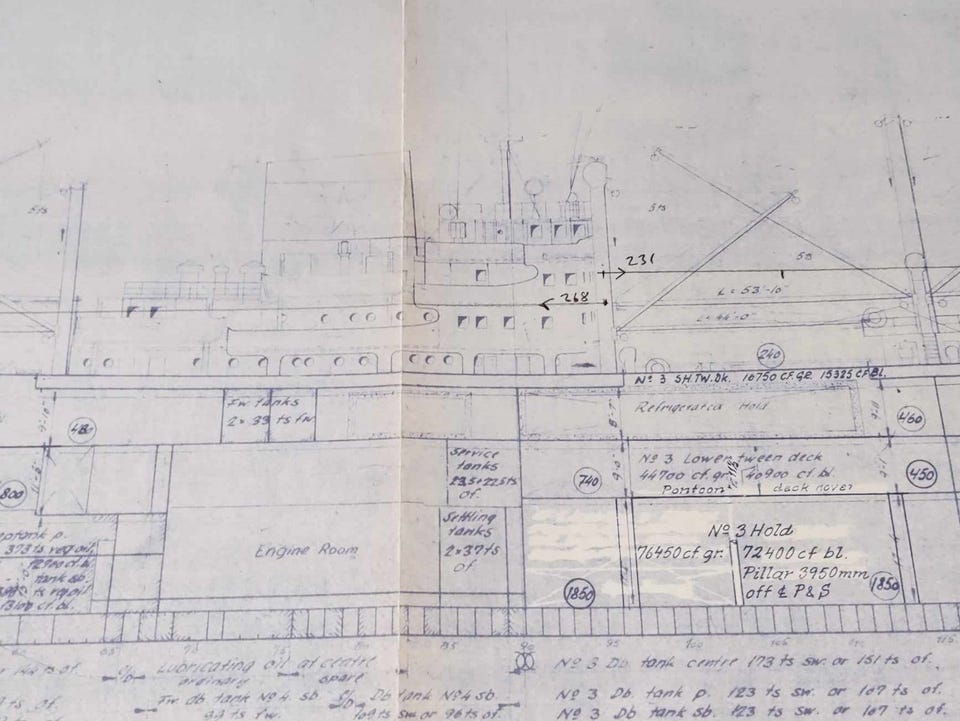 5 ts
5 ts
231
5 ts
268
L = 53'-10"
L = 44'-0"
240
No 3 SH.TW.DK. 16750 CF.GR. 15325 CF.BL.
Fw tanks
2 x 33 ts fw
Refrigerated Hold
48
460
Service
tanks
23,5+22,5 ts
of.
No 3 Lower tween deck
44700 cf. gr. 40900 cf. bl.
Pontoon deck cover
740
450
800
Settling
tanks
2 x 37 ts
of
Engine Room
No 3 Hold
76450 cf. gr. 72400 cf bl.
Pillar 3950 mm
off ℄ P & S
1850
1850
373 ts veg oil,
12900 cf. bl.
tank sb.
ts veg oil
13100 cf. bl.
65
70
85
90
95
100
105
110
115
144 ts of.
Lubricating oil at centre
ordinary spare
No 3 Db tank centre 173 ts sw. or 151 ts of.
Fw db tank No 4 sb
99 ts fw.
Db tank No 4 sb
109 ts sw or 96 ts of.
No 3 Db. tank p. 123 ts sw. or 107 ts of.
No 3 Db. tank sb. 123 ts sw. or 107 ts of.
ts of.